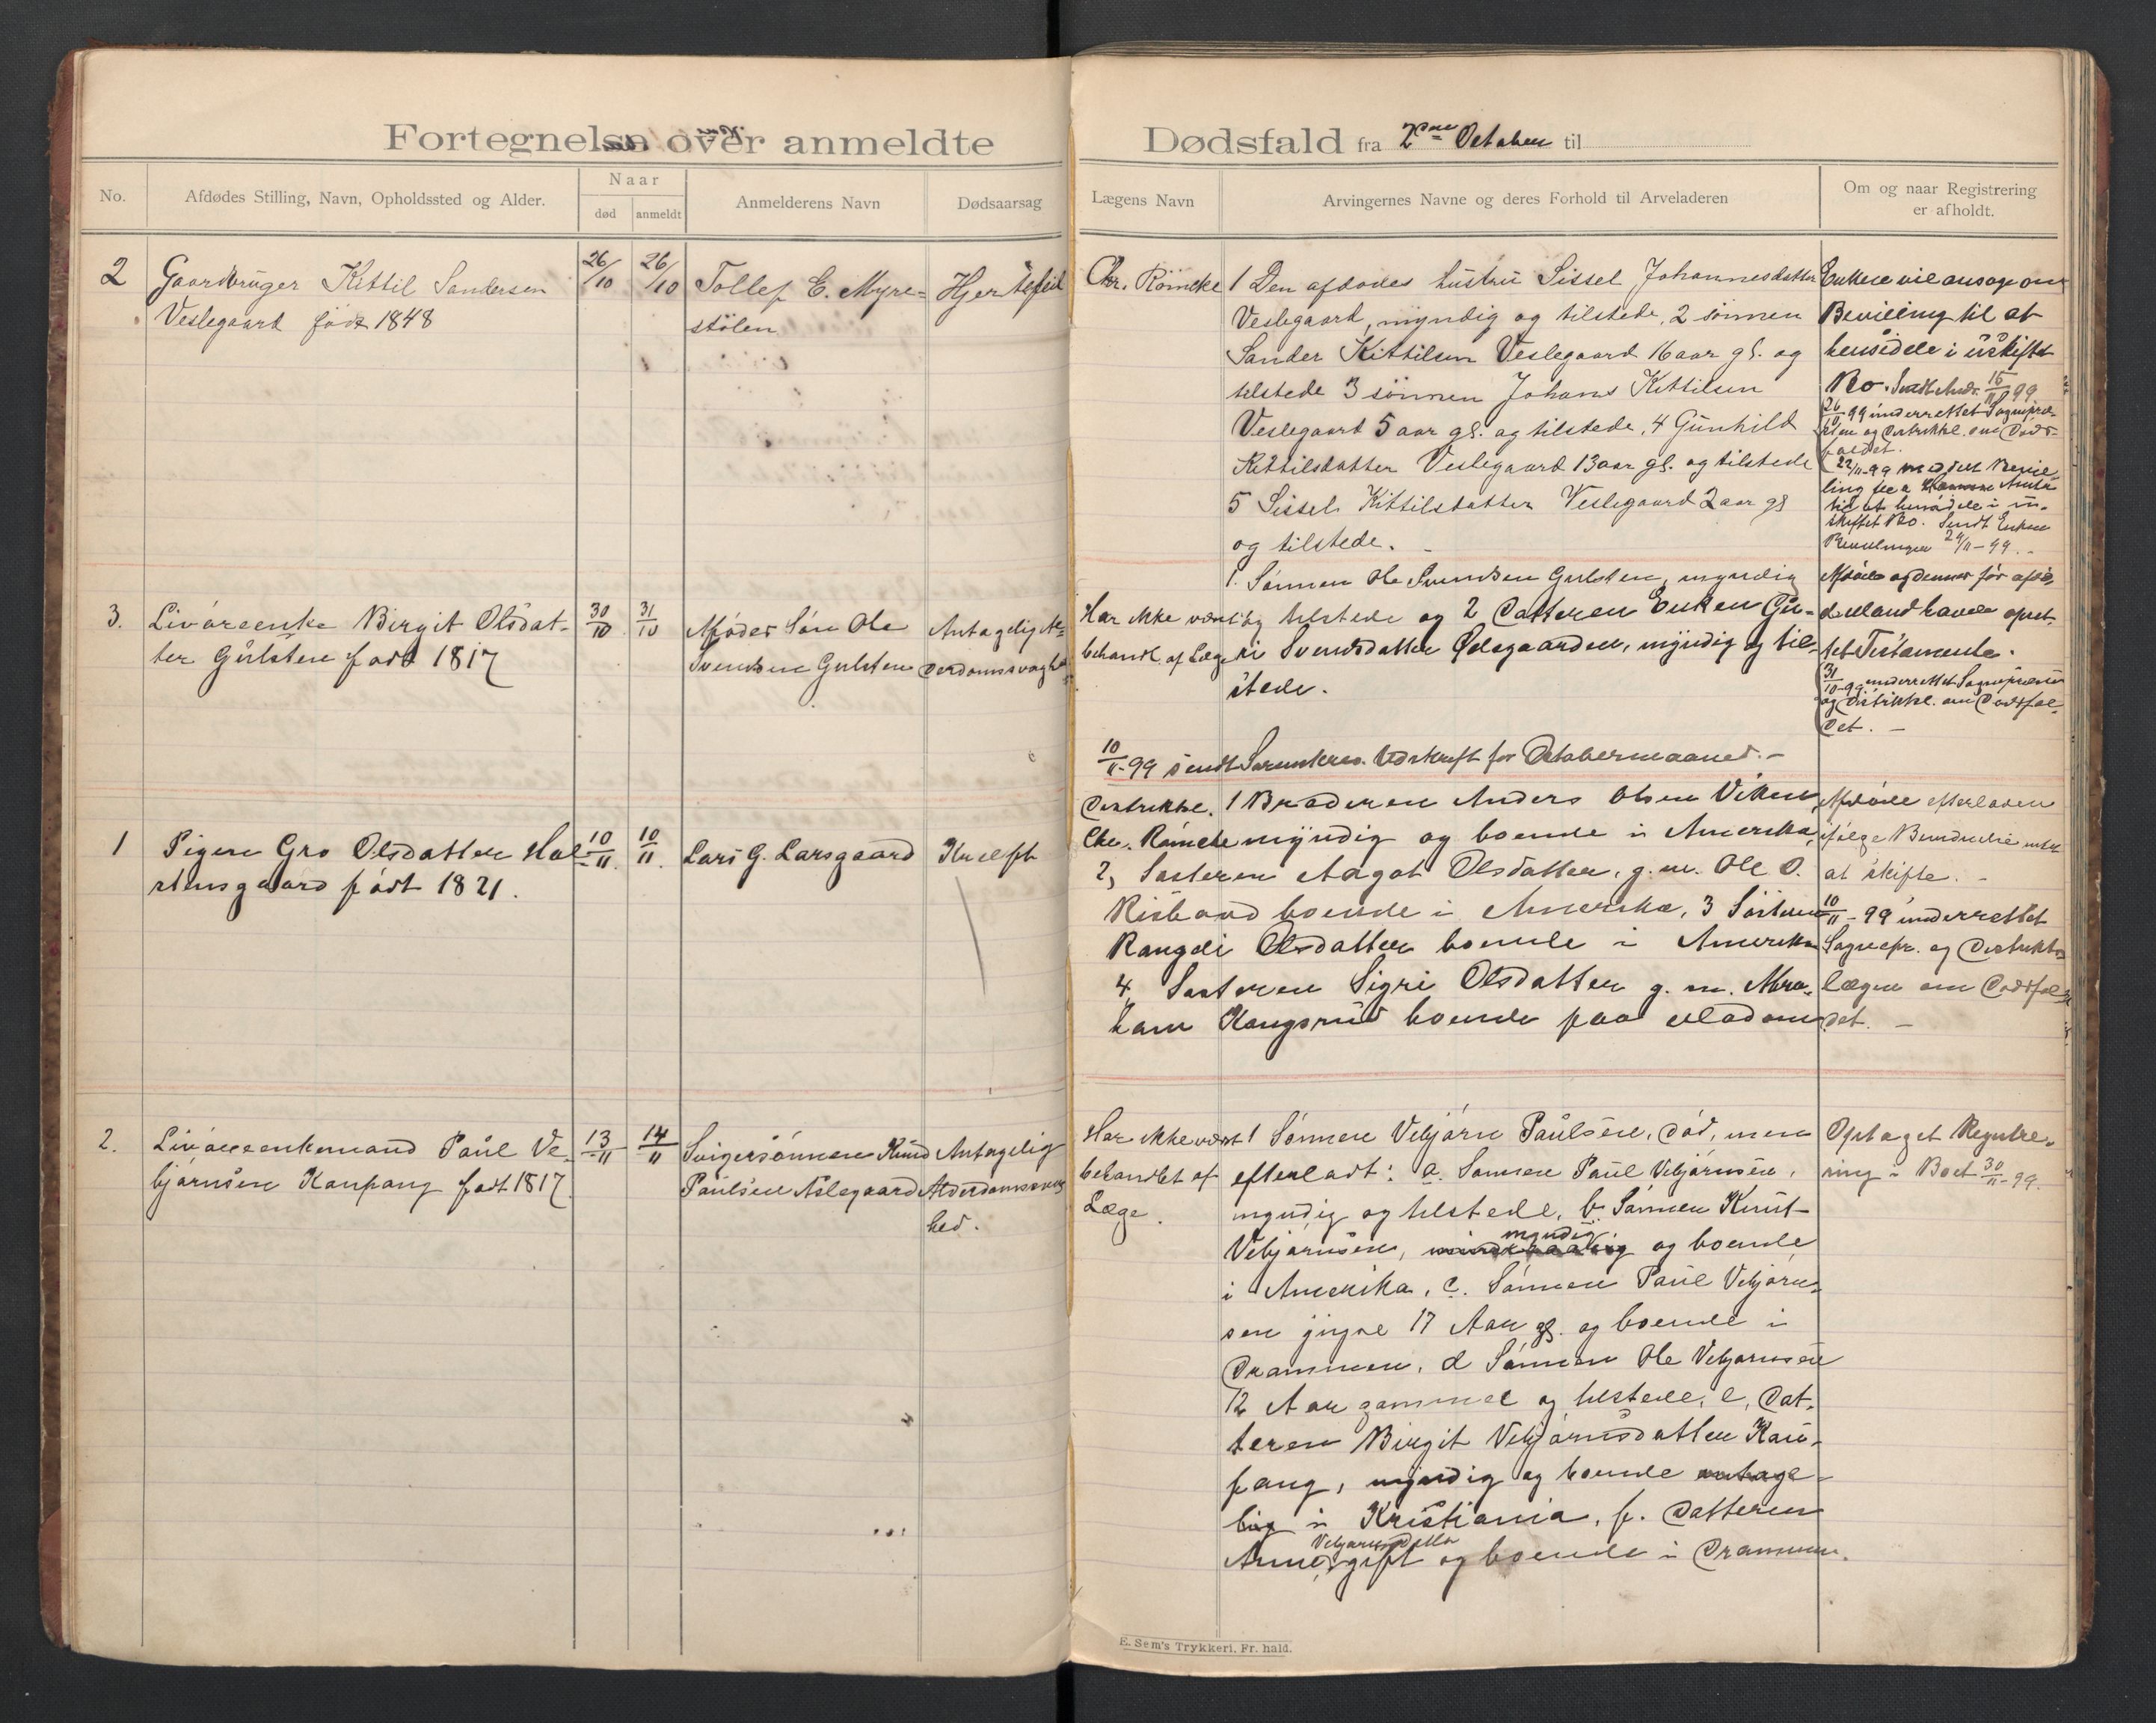 Fortegnelse over anmeldte Dødsfald fra 2den October til
No.
Afdødes Stilling, Navn, Opholdssted og Alder.
Naar
død
anmeldt
Anmelderens Navn
Dødsaarsag
Lægens Navn
Arvingernes Navne og deres Forhold til Arveladeren
Om og naar Registrering
er afholdt.
2
Gaardbruger Kittil Sandersen
Veslegaard født 1848
26/10
26/10
Tollef E. Myre-
stølen
Hjertefeil
Chr. Römcke
1 Den afdødes hustru Sissel Johannesdatter
Veslegaard, myndig og tilstede, 2 sønnen
Sander Kittilsen Veslegaard 16 aar gl. og
tilstede 3 sønnen Johans Kittilsen
Veslegaard 5 aar gl. og tilstede, 4 Gunhild
Kittilsdatter Veslegaard 13 aar gl. og tilstede
5 Sissel Kittilsdatter Veslegaard 2 aar gl
og tilstede.
Enken vil ansøge om
Bevilling til at
hensidde i uskiftet
Bo. Sendt Amt. 15/11 99.
26/10-99 underrettet Sognepræ-
sten og Distriktsl. om Døds-
faldet.
22/11-99 meddelt Bevil-
ling fra Amt
til at hensidde i u-
skiftet Bo. Sendt Enken
Bevillingen 29/11-99.
3.
Livøreenke Birgit Olsdat-
ter Gulsten født 1817
30/10
31/10
Afdødes Søn Ole
Svendsen Gulsten
Antagelig Al-
derdomssvaghed
Har ikke vært
behandl. af Læge
1. Sønnen Ole Svendsen Gulsten, myndig
og tilstede og 2 Datteren Enken Gu-
ri Svendsdatter Ødegaarden, myndig og til-
stede.
Afdøde og dennes før afdø-
de Mand havde opret-
tet Testamente.
31/10-99 underrettet Sognepræsten
og Distriktsl. om Dødsfal-
det.
10/11-99 sendt Sorenskriv. Udskrift for Octobermaaned.
1
Pigen Gro Olsdatter Hol-
stensgaard født 1821.
10/11.
10/11.
Lars G. Larsgaard
Kræft
Distriktsl.
Chr. Römcke
1 Broderen Anders Olsen Viken,
myndig og boende i Amerika,
2, Søsteren Aagot Olsdatter, g. m. Ole O.
Risland boende i Amerika, 3 Søsteren
Rangdi Olsdatter boende i Amerika
4, Søsteren Sigri Olsdatter g. m. Abra-
ham Kongsrud boende paa Modum.
Afdøde efterladen
ifølge Beundrelse intet
at skifte.
10/11-99 underrettet
Sognepr. og Distrikts-
lægen om Dødsfal-
det.
2.
Livøreenkemand Paul Ve-
bjørnsen Kaupang født 1817
13/11
14/11
Svigersønnen Knud
Paulsen Aslegaard
Antagelig
Alderdomssvag-
hed.
Har ikke vært
behandlet af
Læge.
1 Sønnen Vebjørn Paulsen, død, men
efterladt: a. Sønnen Paul Vebjørnsen,
myndig og tilstede, b. Sønnen Knut
Vebjørnsen, myndig og boende
i Amerika, c. Sønnen Paul Vebjørn-
sen yngre 17 Aar gl. og boende i
Drammen, d Sønnen Ole Vebjørnsen
12 Aar gammel og tilstede, e, Dat-
teren Birgit Vebjørnsdatter Kau-
pang, myndig og boende antage-
lig i Kristiania, f. Datteren
Anne Vebjørnsdatter gift og boende i Drammen.
Optaget Registre-
ring i Boet 30/11-99.
E. Sem's Trykkeri, Fr. hald.